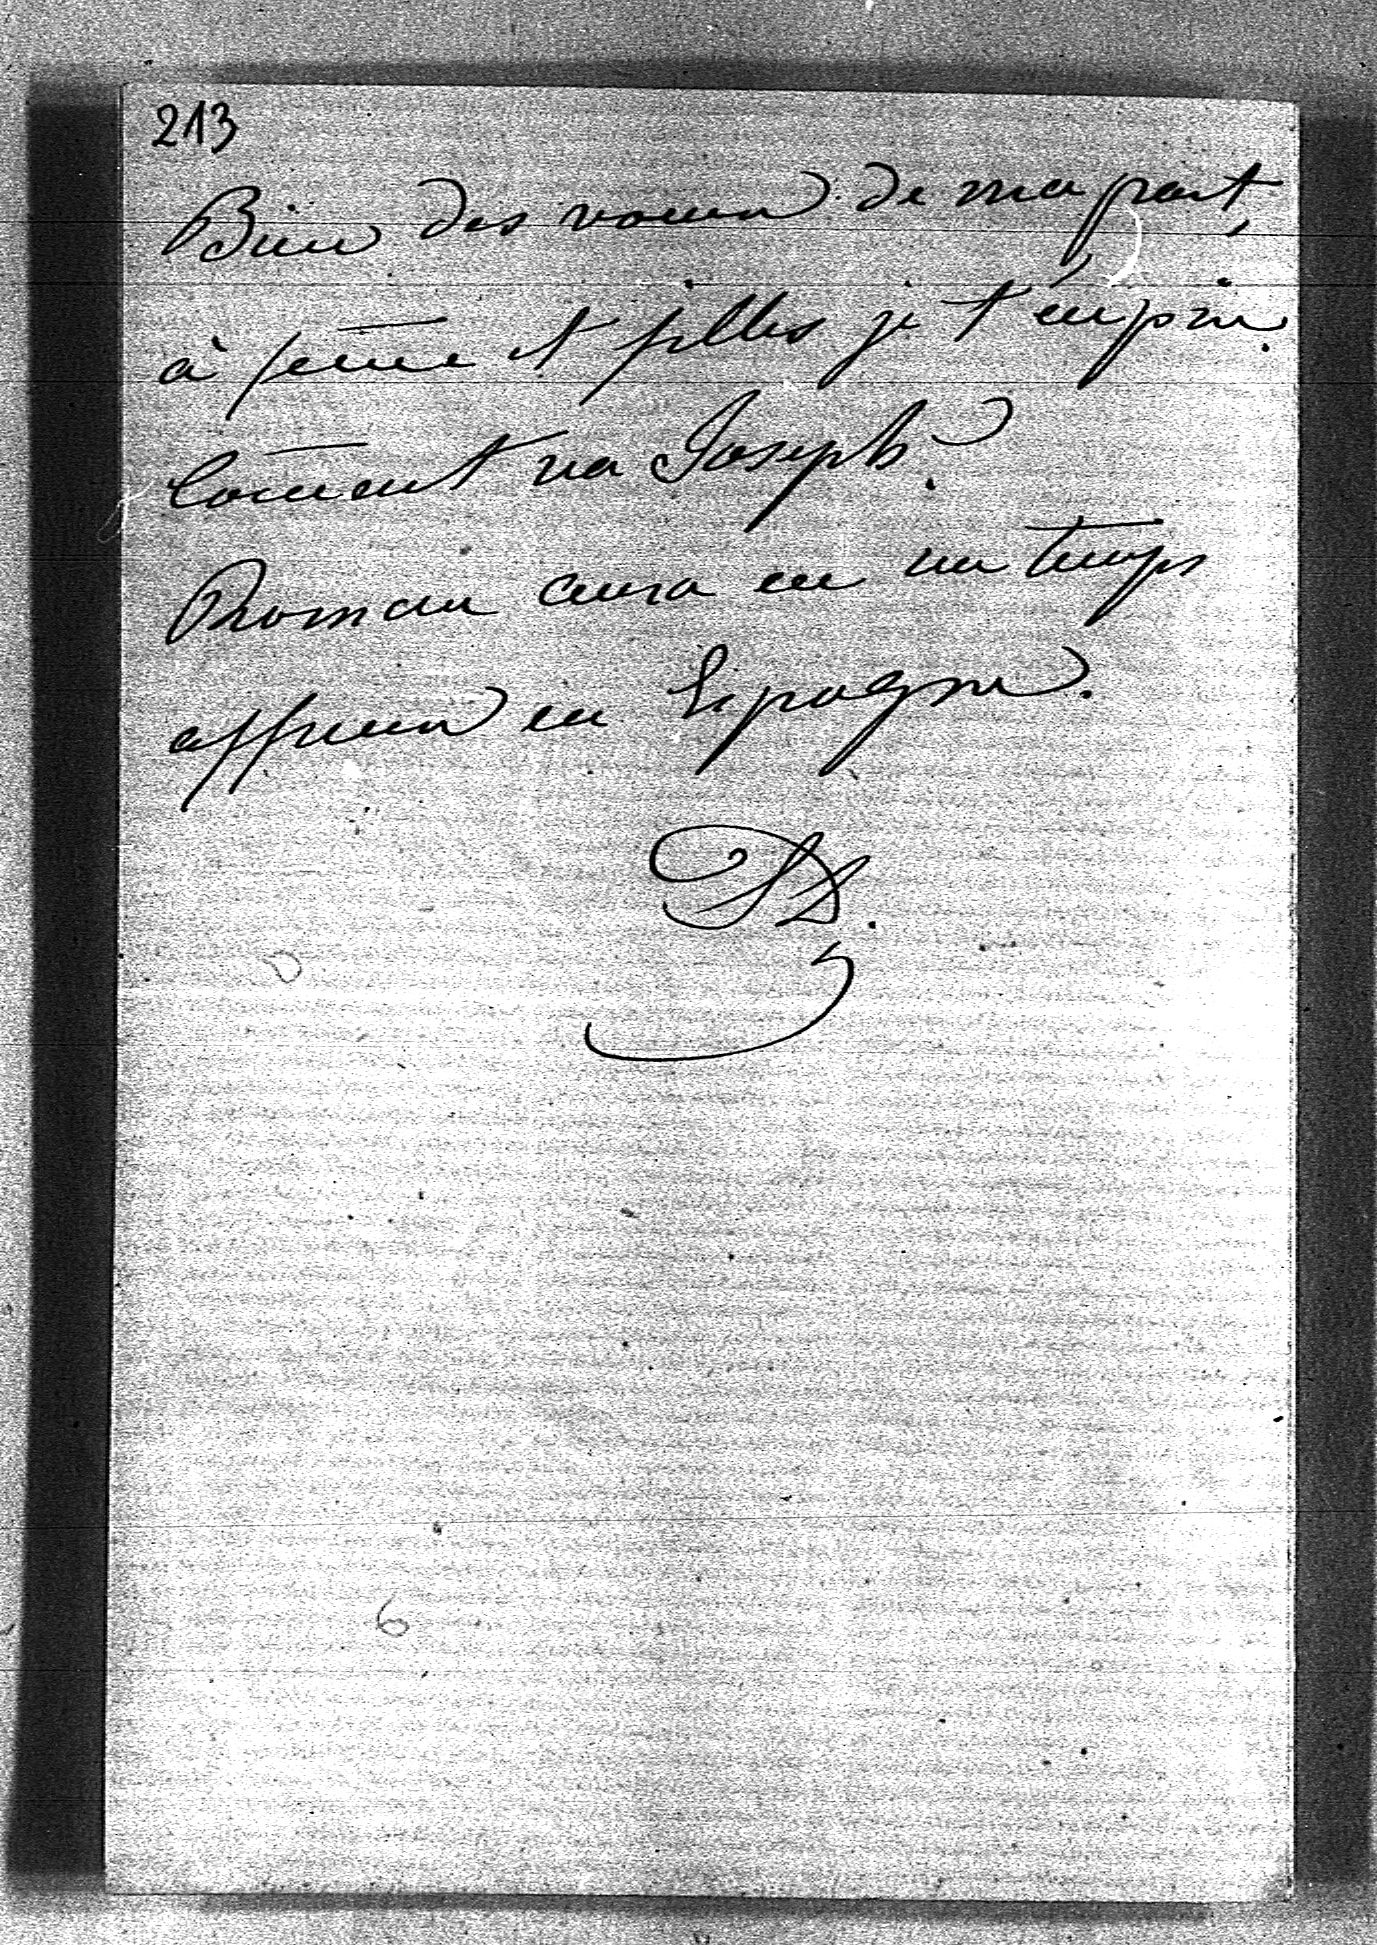 213
Bien des voeux de ma part,
à fem̄e et filles je t'en prie.
Com̄ent va Joseph?
Roman aura eu un temps
affreux en Espagne.
6